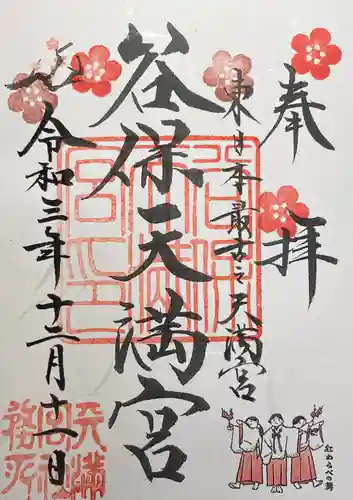 奉拝
東日本最古之天満宮
谷保天満宮
令和三年十二月十一日
紅わらべの舞